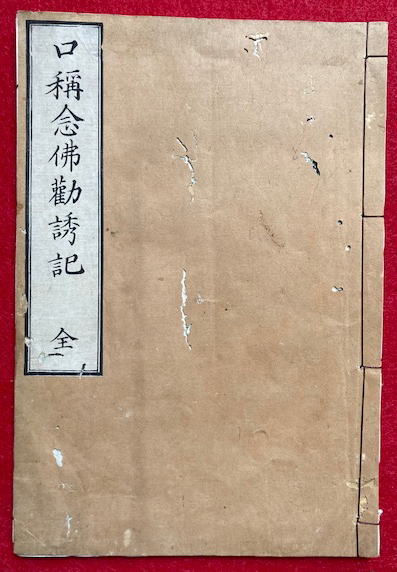 口稱念佛勸誘記 全